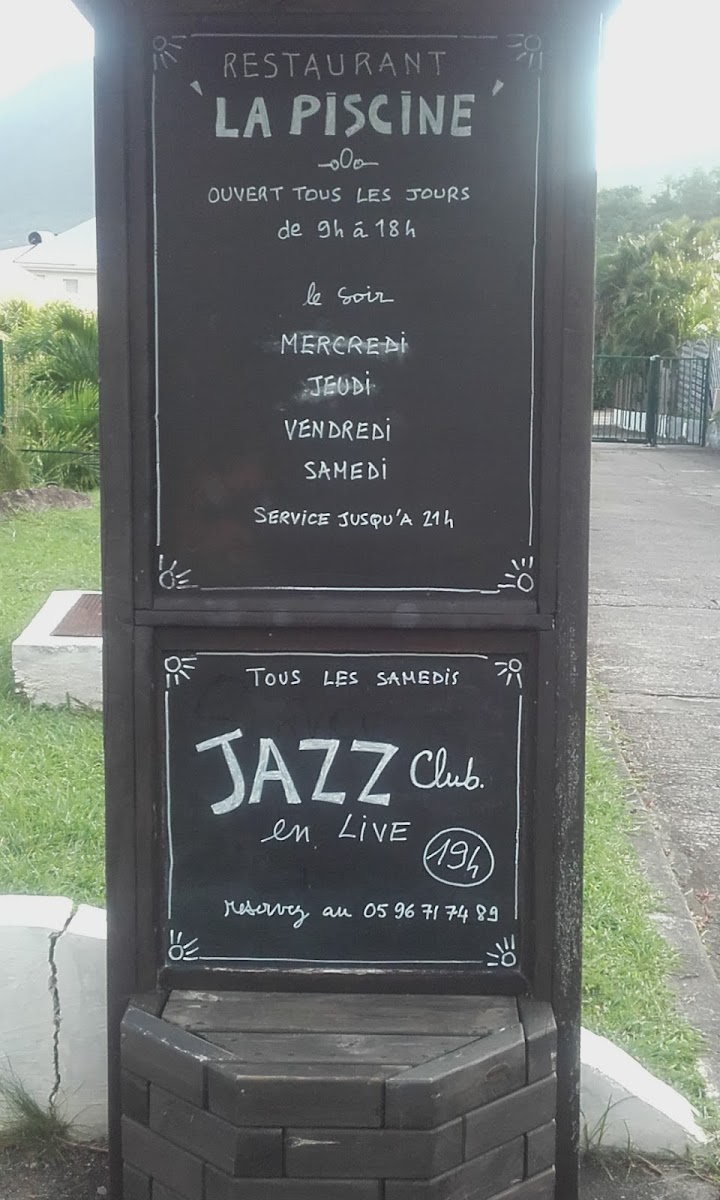 RESTAURANT
'LA PISCINE'
OUVERT TOUS LES JOURS
de 9h à 18h
le soir
MERCREDI
JEUDI
VENDREDI
SAMEDI
SERVICE JUSQU'A 21h
TOUS LES SAMEDIS
JAZZ Club.
en LIVE
19h
reservez au 05 96 71 74 89